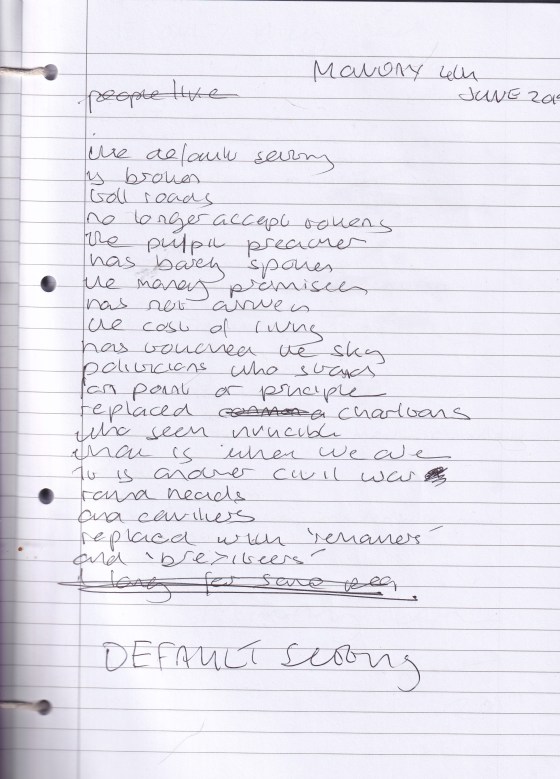 MONDAY 4th
JUNE 201
people live
the default setting
is broken
toll roads
no longer accept tokens
the pulpit preacher
has barely spoken
the money promised
has not arrived
the cost of living
has touched the sky
politicians who stand
for point of principle
replaced common a charlatans
who seem invincible
what is where we are
It is another civil war
round heads
and cavaliers
replaced with 'remainers'
and 'brexiteers'
I long for some
DEFAULT Setting